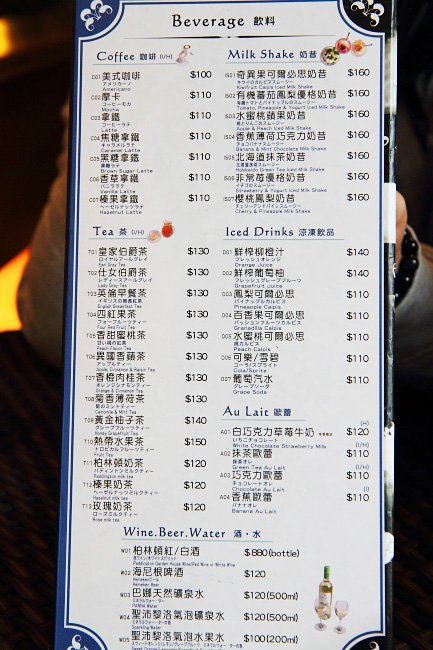 Beverage 飲料
Coffee 咖啡 (I/H)
C01 美式咖啡 $100
アメリカーノ
Americano
C02 摩卡 $110
コーヒーモカ
Mocha
C03 拿鐵 $110
コーヒーラテ
Latte
C04 焦糖拿鐵 $110
キャラメルラテ
Caramel Latte
C05 黑糖拿鐵 $110
黒糖ラテ
Brown Sugar Latte
C06 香草拿鐵 $110
バニララテ
Vanilla Latte
C07 榛果拿鐵 $110
ヘーゼルナッツラテ
Hazelnut Latte
Tea 茶 (I/H)
T01 皇家伯爵茶 $130
ロイヤルアールグレイ
Earl Gray Tea
T02 仕女伯爵茶 $130
レディースアールグレイ
Lady Gray Tea
T03 英倫早餐茶 $130
イギリスの朝食紅茶
English Breakfast Tea
T04 四紅果茶 $130
フォーフルーツティー
Four Red Fruit Tea
T05 香甜蜜桃茶 $130
Peach Flavor Tea
T06 異國香蘋茶 $130
アップルティー
Apple, Cinnamon & Raisin Tea
T07 香橙肉桂茶 $130
オレンジシナモンティー
Orange & Cinnamon Tea
T08 菊香薄荷茶 $130
Camomile & Mint Tea
T09 黃金柚子茶 $140
グレープフルーツティー
Honey Grapefruit Tea
T10 熱帶水果茶 $150
トロピカルフルーツティー
Fruit Tea
T11 柏林頓奶茶 $120
パディントンミルクティー
Paddington milk tea
T12 榛果奶茶 $120
ヘーゼルナッツミルクティー
Hazelnut milk tea
T13 玫瑰奶茶 $120
ローズミルクティー
Rose milk tea
Milk Shake 奶昔
IS01 奇異果可爾必思奶昔 $160
キウイのカルピススムージー
Kiwifruit Calpis Iced Milk Shake
IS02 有機蕃茄鳳梨優格奶昔 $160
有機トマトとパイナップルのスムージー
Tomato, Pineapple & Yogurt Iced Milk Shake
IS03 水蜜桃蘋果奶昔 $160
桃とりんごのスムージー
Apple & Peach Iced Milk Shake
IS04 香蕉薄荷巧克力奶昔 $160
チョコバナナスムージー
Banana & Mint Chocolate Milk Shake
IS05 北海道抹茶奶昔 $160
北海道抹茶スムージー
Hokkaido Green Tea Iced Milk Shake
IS06 非常莓優格奶昔 $160
イチゴのスムージー
Strawberry & Yogurt Iced Milk Shake
IS07 櫻桃鳳梨奶昔 $160
チェリーアンドパインスムージー
Cherry & Pineapple Milk Shake
Iced Drinks 涼凍飲品
D01 鮮榨柳橙汁 $140
フレッシュオレンジ
Orange Juice
D02 鮮榨葡萄柚 $140
フレッシュグレープフルーツ
Grapefruit Juice
D03 鳳梨可爾必思 $110
パイナップルカルピス
Pineapple Calpis
D04 百香果可爾必思 $110
パッションフルーツカルピス
Granadilla Calpis
D05 水蜜桃可爾必思 $110
桃カルピス
Peach Calpis
D06 可樂/雪碧 $110
コーラ/スプライト
Cola/Sprite
D07 葡萄汽水 $110
グレープソーダ
Grape Soda
Au Lait 歐蕾
(H)
A01 白巧克力草莓牛奶 $120
いちごチョコレート
White Chocolate Strawberry Milk (I/H)
A02 抹茶歐蕾 $110
抹茶オレ
Green Tea Au Lait (I/H)
A03 巧克力歐蕾 $110
チョコレートオレ
Chocolate Au Lait (I)
A04 香蕉歐蕾 $110
バナナオレ
Banana Au Lait
Wine.Beer.Water 酒・水
W01 柏林頓紅/白酒 $880(bottle)
Paddington Garden House Wine/Red Wine or White Wine
W02 海尼根啤酒 $120
Heineken Beer
W03 巴娜天然礦泉水 $120(500ml)
PANNA Water
W04 聖沛黎洛氣泡礦泉水 $120(500ml)
Sparkling Water
W05 聖沛黎洛氣泡水果水 $100(200ml)